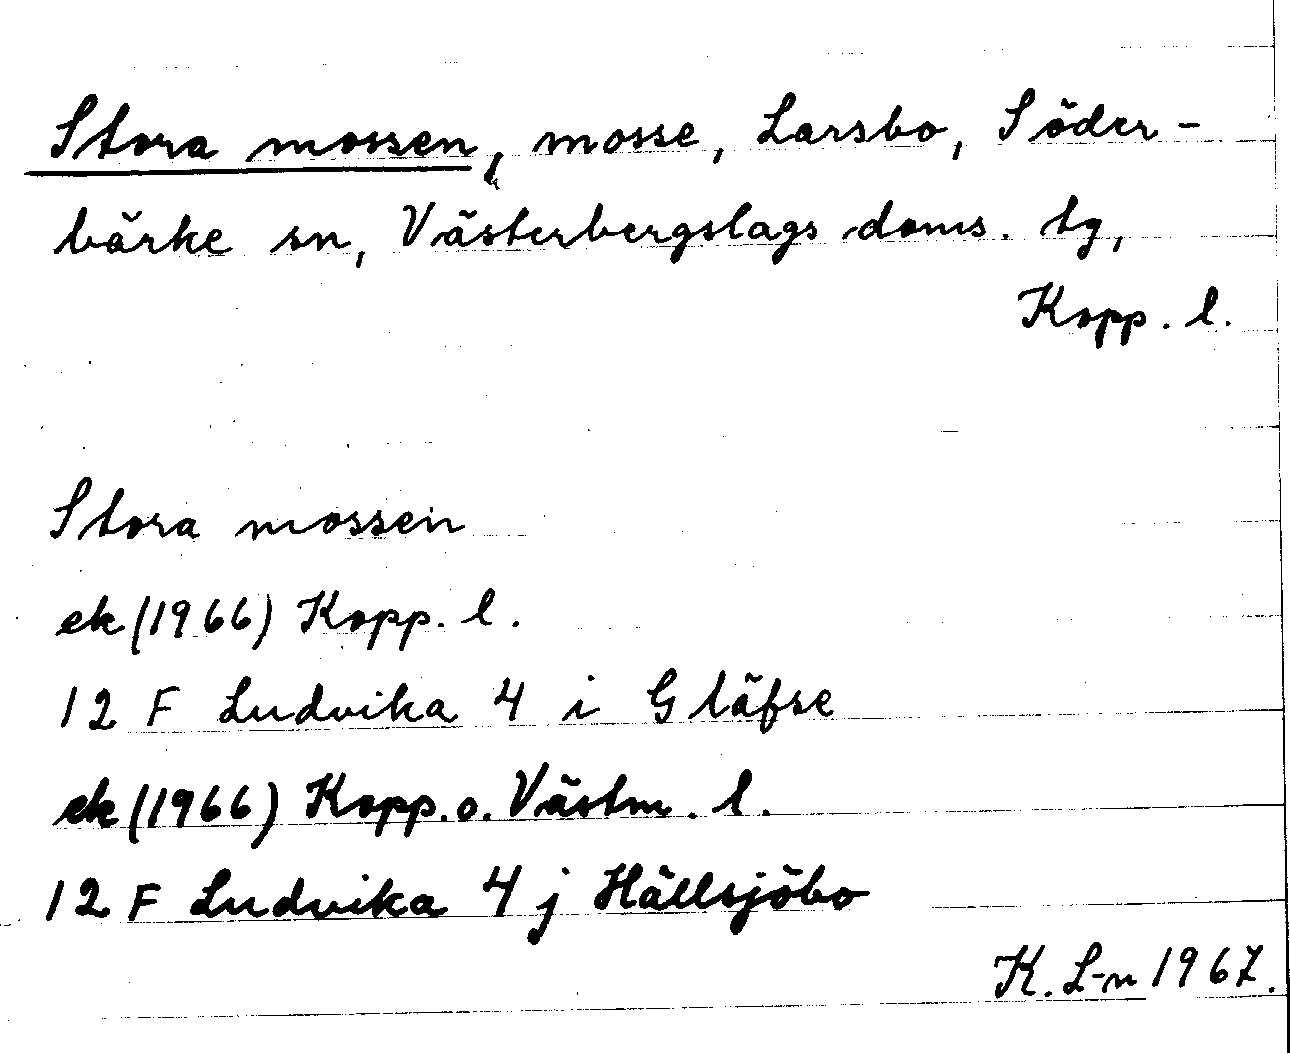 Stora mossen, mosse, Larsbo, Söder-
bärke sn, Västerbergslags doms. tg,
Kopp. l.
Stora mossen
ek (1966) Kopp. l.
12 F Ludvika 4 i Gläfse
ek (1966) Kopp. o. Västm. l.
12 F Ludvika 4 j Hällsjöbo
K. L-n 1967.